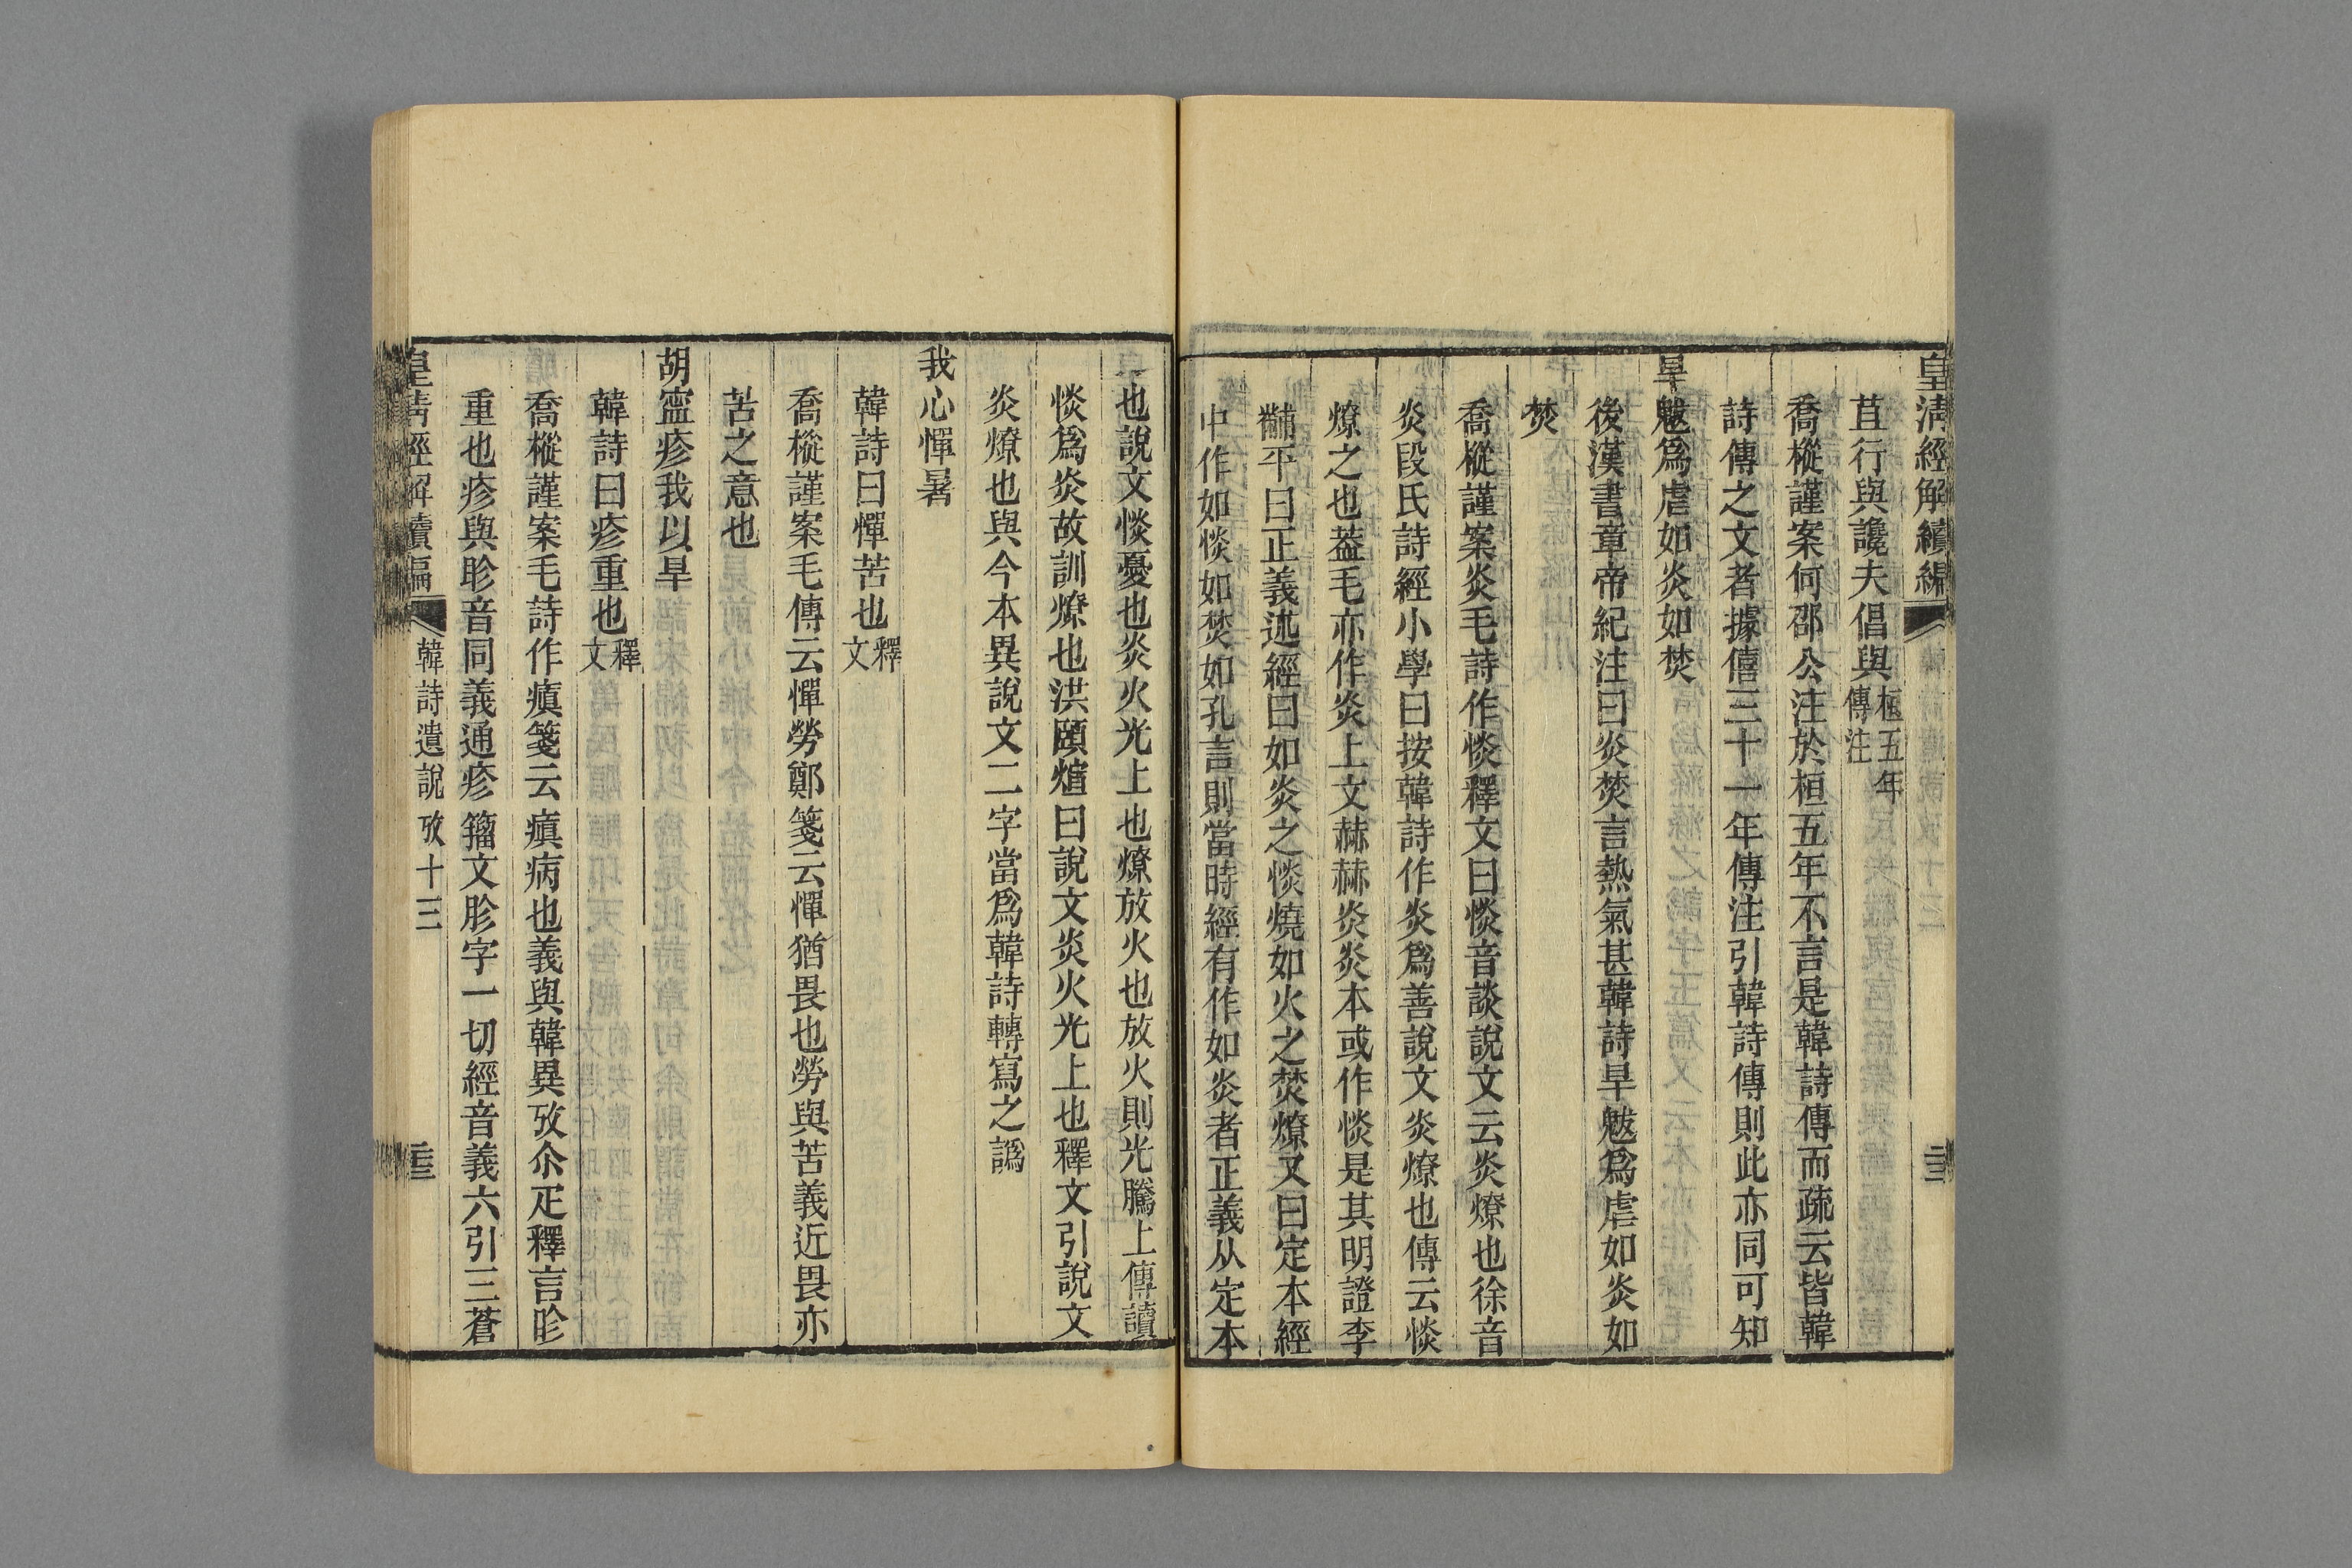 皇清經解續編
苴行與讒夫倡與桓五年傳注
喬樅謹案何邵公注於桓五年不言是韓詩傳而疏云皆韓
詩傳之文者據僖三十一年傳注引韓詩傳則此亦同可知
旱魃爲虐如炎如焚
後漢書章帝紀注曰炎焚言熱氣甚韓詩旱魃爲虐如炎如
焚
喬樅謹案炎毛詩作惔釋文曰惔音談說文云炎燎也徐音
炎段氏詩經小學曰按韓詩作炎爲善說文炎燎也傳云惔
燎之也葢毛亦作炎上文赫赫炎炎本或作惔是其明證李
黼平曰正義述經曰如炎之惔燒如火之焚燎又曰定本經
中作如惔如焚如孔言則當時經有作如炎者正義从定本
也說文惔憂也炎火光上也燎放火也放火則光騰上傳讀
惔爲炎故訓燎也洪頤煊曰說文炎火光上也釋文引說文
炎燎也與今本異說文二字當爲韓詩轉寫之譌
我心憚暑
韓詩曰憚苦也釋文
喬樅謹案毛傳云憚勞鄭箋云憚猶畏也勞與苦義近畏亦
苦之意也
胡寍疹我以旱
韓詩曰疹重也釋文
喬樅謹案毛詩作瘨箋云瘨病也義與韓異攷尒疋釋言眕
重也疹與眕音同義通疹籀文胗字一切經音義六引三蒼
皇清經解續編 韓詩遺說攷十三